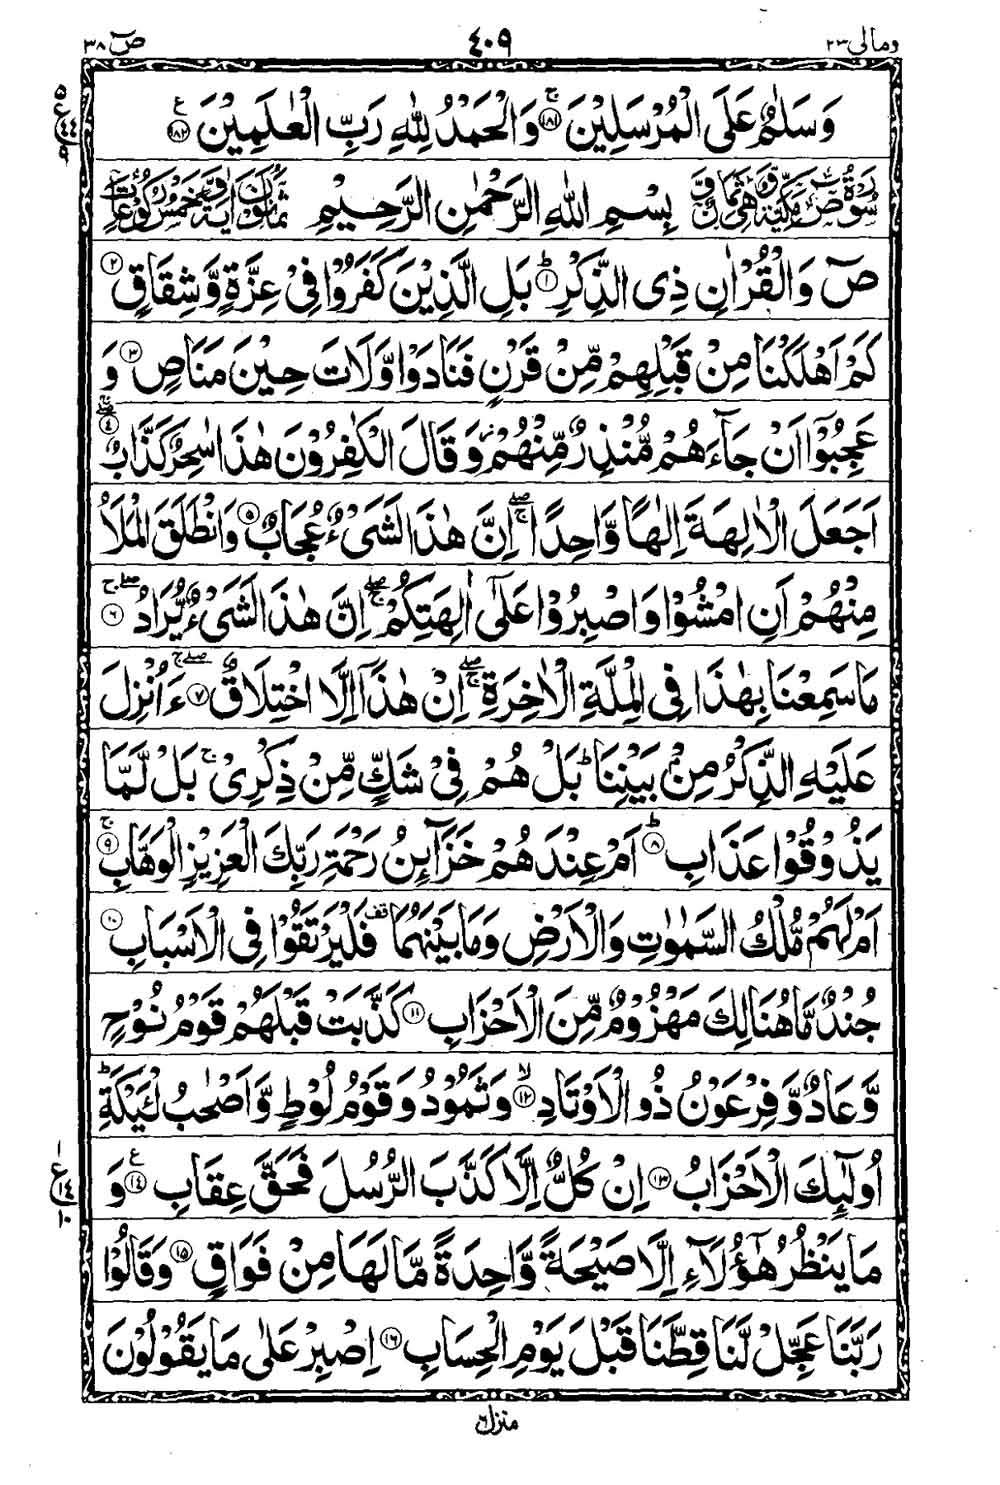 ومالی ٢٣ ٤٠٩ صٓ ٣٨
وَسَلٰمٌ عَلَى الْمُرْسَلِيْنَ ۚ‏﴿١٨١﴾ وَالْحَمْدُ لِلّٰهِ رَبِّ الْعٰلَمِيْنَ ﴿١٨٢﴾ ع
سُوْرَةُ صٓ مَكِّيَّةٌ وَّهِىَ ثَمَانٌ وَّ بِسْمِ اللّٰهِ الرَّحْمٰنِ الرَّحِيْمِ ثَمَانُوْنَ اٰيَةً وَّخَمْسُ رُكُوْعَاتٍ
صٓ وَالْقُرْاٰنِ ذِى الذِّكْرِ ؕ﴿١﴾ بَلِ الَّذِيْنَ كَفَرُوْا فِىْ عِزَّةٍ وَّشِقَاقٍ ﴿٢﴾
كَمْ اَهْلَكْنَا مِنْ قَبْلِهِمْ مِّنْ قَرْنٍ فَنَادَوْا وَّلَاتَ حِيْنَ مَنَاصٍ ﴿٣﴾ وَ
عَجِبُوْۤا اَنْ جَآءَهُمْ مُّنْذِرٌ مِّنْهُمْ ؗ وَقَالَ الْكٰفِرُوْنَ هٰذَا سٰحِرٌ كَذَّابٌ ﴿٤﴾ صلےج
اَجَعَلَ الْاٰلِهَةَ اِلٰهًا وَّاحِدًا ۖۚ اِنَّ هٰذَا لَشَىْءٌ عُجَابٌ ﴿٥﴾ وَانْطَلَقَ الْمَلَاُ
مِنْهُمْ اَنِ امْشُوْا وَاصْبِرُوْا عَلٰٓى اٰلِهَتِكُمْ ۖۚ اِنَّ هٰذَا لَشَىْءٌ يُّرَادُ ۖۚ﴿٦﴾
مَا سَمِعْنَا بِهٰذَا فِى الْمِلَّةِ الْاٰخِرَةِ ۖۚ اِنْ هٰذَاۤ اِلَّا اخْتِلَاقٌ ۖۚ﴿٧﴾ ءَاُنْزِلَ
عَلَيْهِ الذِّكْرُ مِنْۢ بَيْنِنَا ؕ بَلْ هُمْ فِىْ شَكٍّ مِّنْ ذِكْرِىْ ۚ بَلْ لَّمَّا
يَذُوْقُوْا عَذَابِ ؕ﴿٨﴾ اَمْ عِنْدَهُمْ خَزَآئِنُ رَحْمَةِ رَبِّكَ الْعَزِيْزِ الْوَهَّابِ ۚ﴿٩﴾
اَمْ لَهُمْ مُّلْكُ السَّمٰوٰتِ وَالْاَرْضِ وَمَا بَيْنَهُمَا قف فَلْيَرْتَقُوْا فِى الْاَسْبَابِ ﴿١٠﴾
جُنْدٌ مَّا هُنَالِكَ مَهْزُوْمٌ مِّنَ الْاَحْزَابِ ﴿١١﴾ كَذَّبَتْ قَبْلَهُمْ قَوْمُ نُوْحٍ
وَّعَادٌ وَّفِرْعَوْنُ ذُو الْاَوْتَادِ ۙ﴿١٢﴾ وَثَمُوْدُ وَقَوْمُ لُوْطٍ وَّاَصْحٰبُ لْئَيْكَةِ ؕ
اُولٰٓئِكَ الْاَحْزَابُ ﴿١٣﴾ اِنْ كُلٌّ اِلَّا كَذَّبَ الرُّسُلَ فَحَقَّ عِقَابِ ﴿١٤﴾ ع وَ
مَا يَنْظُرُ هٰٓؤُلَآءِ اِلَّا صَيْحَةً وَّاحِدَةً مَّا لَهَا مِنْ فَوَاقٍ ﴿١٥﴾ وَقَالُوْا
رَبَّنَا عَجِّلْ لَّنَا قِطَّنَا قَبْلَ يَوْمِ الْحِسَابِ ﴿١٦﴾ اِصْبِرْ عَلٰى مَا يَقُوْلُوْنَ
منزل ٦